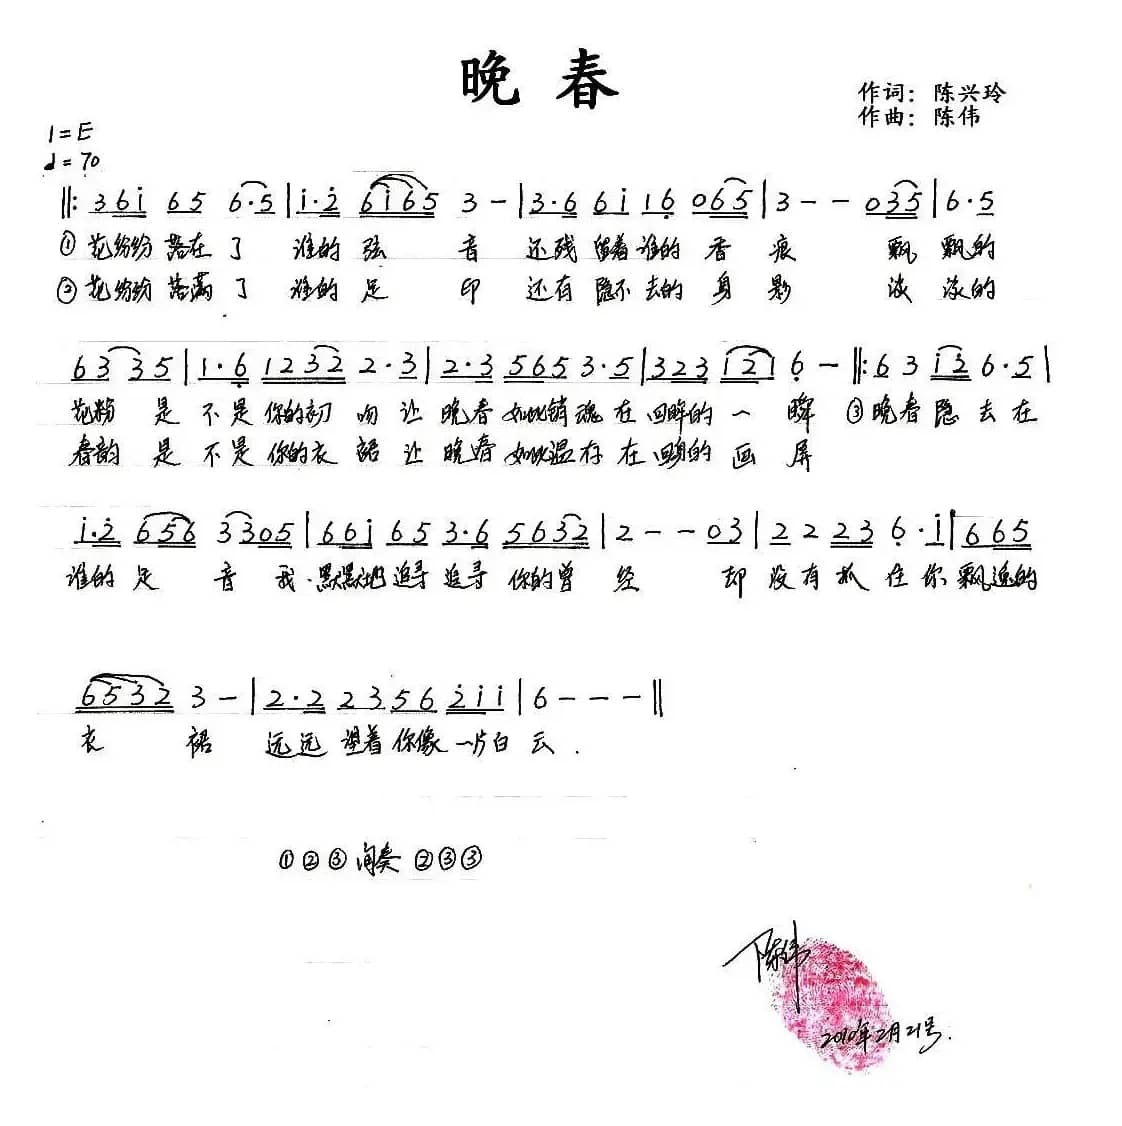 晚春
作词：陈兴玲
作曲：陈伟
1=E
♩=70
‖: 3 6 i 6 5 6·5 | i·2 6 i 6 5 3 - | 3·6 6 i 1 6 0 6 5 | 3 - - 0 3 5 | 6·5
① 花纷纷 落在了 谁的弦 音 还残留着谁的香痕 飘飘的
② 花纷纷 落满了 谁的足 印 还有隐不去的身影 淡淡的
6 3 3 5 | 1·6 1 2 3 2 2·3 | 2·3 5 6 5 3·5 | 3 2 3 i 2 1 6 - ‖: 6 3 i 2 6·5 |
花粉 是 不是你的初 吻让晚春如此销魂在回眸的一 瞬 ③晚春隐去在
春韵 是 不是你的衣 裙让晚春如此温存在回身的画 屏
i·2 6 5 6 3 3 0 5 | 6 6 i 6 5 3·6 5 6 3 2 | 2 - - 0 3 | 2 2 2 3 6·i | 6 6 5
谁的足 音 我·默默地追寻追寻你的曾 经 却没有抓住你飘逸的
6 5 3 2 3 - | 2·2 2 3 5 6 2 i i | 6 - - - ‖
衣 裙 远远望着你像一片白云.
① ② ③ 间奏 ② ③ ③
陈伟
2010年2月21号.